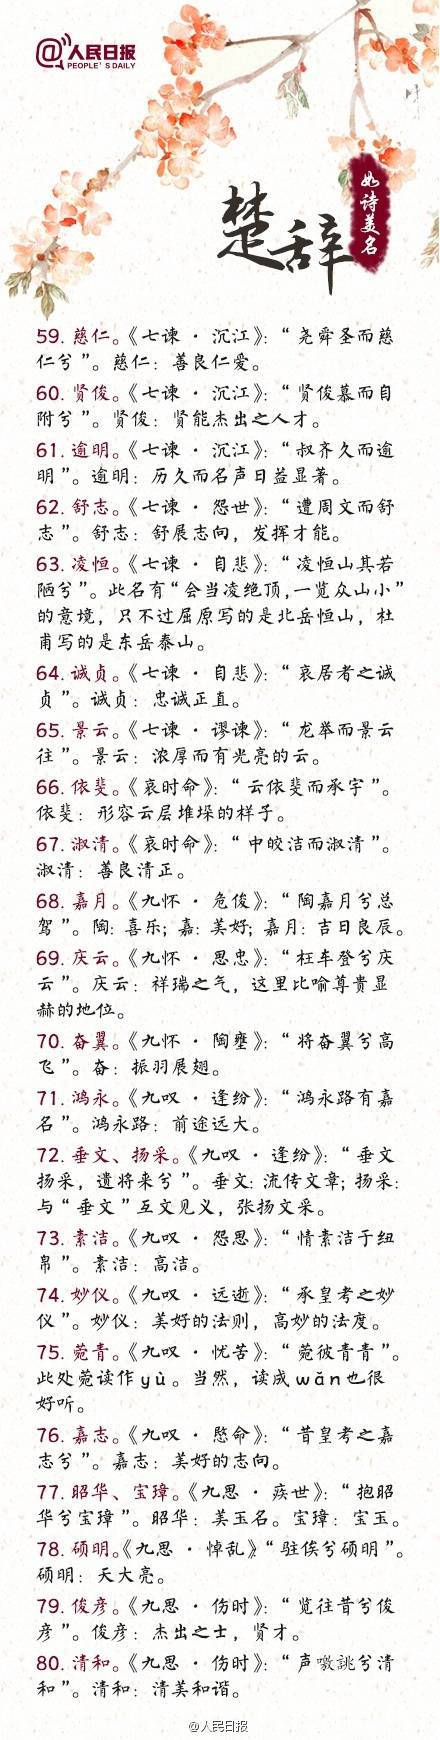 @人民日报
PEOPLE'S DAILY
如诗美名
楚辞
59. 慈仁。《七谏 · 沉江》：“尧舜圣而慈
仁兮”。慈仁：善良仁爱。
60. 贤俊。《七谏 · 沉江》：“贤俊慕而自
附兮”。贤俊：贤能杰出之人才。
61. 逾明。《七谏 · 沉江》：“叔齐久而逾
明”。逾明：历久而名声日益显著。
62. 舒志。《七谏 · 怨世》：“遭周文而舒
志”。舒志：舒展志向，发挥才能。
63. 凌恒。《七谏 · 自悲》：“凌恒山其若
陋兮”。此名有“会当凌绝顶，一览众山小”
的意境，只不过屈原写的是北岳恒山，杜
甫写的是东岳泰山。
64. 诚贞。《七谏 · 自悲》：“哀居者之诚
贞”。诚贞：忠诚正直。
65. 景云。《七谏 · 谬谏》：“龙举而景云
往”。景云：浓厚而有光亮的云。
66. 依斐。《哀时命》：“云依斐而承宇”。
依斐：形容云层堆垛的样子。
67. 淑清。《哀时命》：“中皎洁而淑清”。
淑清：善良清正。
68. 嘉月。《九怀 · 危俊》：“陶嘉月兮总
驾”。陶：喜乐；嘉：美好；嘉月：吉日良辰。
69. 庆云。《九怀 · 思忠》：“枉车登兮庆
云”。庆云：祥瑞之气，这里比喻尊贵显
赫的地位。
70. 奋翼。《九怀 · 陶壅》：“将奋翼兮高
飞”。奋：振羽展翅。
71. 鸿永。《九叹 · 逢纷》：“鸿永路有嘉
名”。鸿永路：前途远大。
72. 垂文、扬采。《九叹 · 逢纷》：“垂文
扬采，遗将来兮”。垂文：流传文章；扬采：
与“垂文”互文见义，张扬文采。
73. 素洁。《九叹 · 怨思》：“情素洁于纽
帛”。素洁：高洁。
74. 妙仪。《九叹 · 远逝》：“承皇考之妙
仪”。妙仪：美好的法则，高妙的法度。
75. 菀青。《九叹 · 忧苦》：“菀彼青青”。
此处菀读作yù。当然，读成wǎn也很
好听。
76. 嘉志。《九叹 · 愍命》：“昔皇考之嘉
志兮”。嘉志：美好的志向。
77. 昭华、宝璋。《九思 · 疾世》：“抱昭
华兮宝璋”。昭华：美玉名。宝璋：宝玉。
78. 硕明。《九思 · 悼乱》“驻俟兮硕明”。
硕明：天大亮。
79. 俊彦。《九思 · 伤时》：“览往昔兮俊
彦”。俊彦：杰出之士，贤才。
80. 清和。《九思 · 伤时》：“声噭誂兮清
和”。清和：清美和谐。
@人民日报